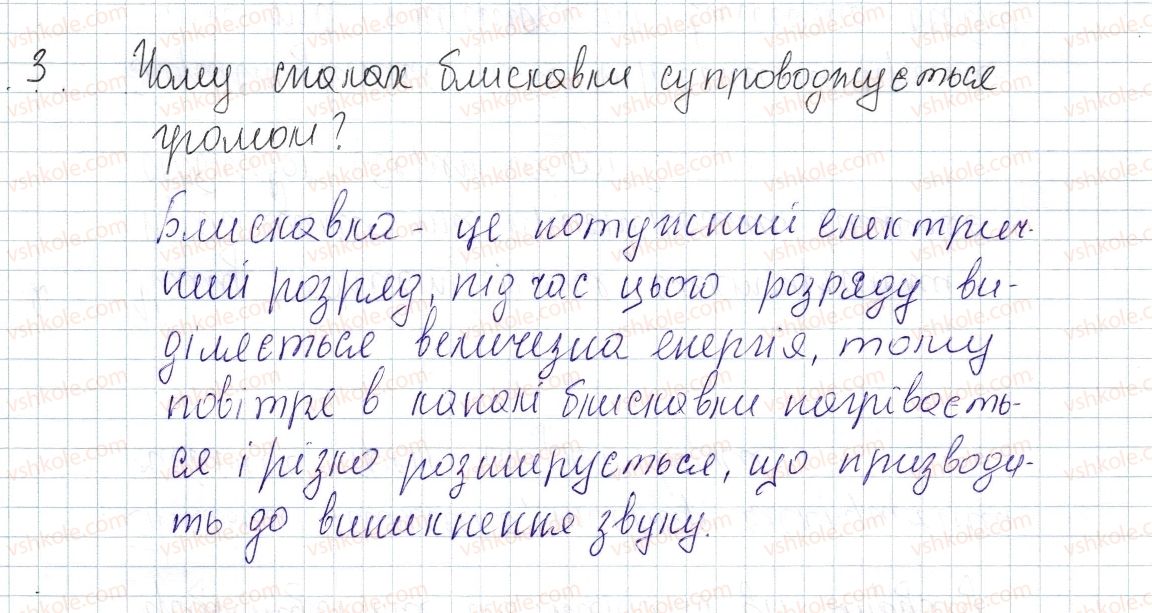 3. Чому спалах блискавки супроводжується
громом?
Блискавка - це потужний електрич-
ний розряд, під час цього розряду ви-
діляється величезна енергія, тому
повітря в каналі блискавки нагріваєть-
ся і різко розширується, що призводи-
ть до виникнення звуку.